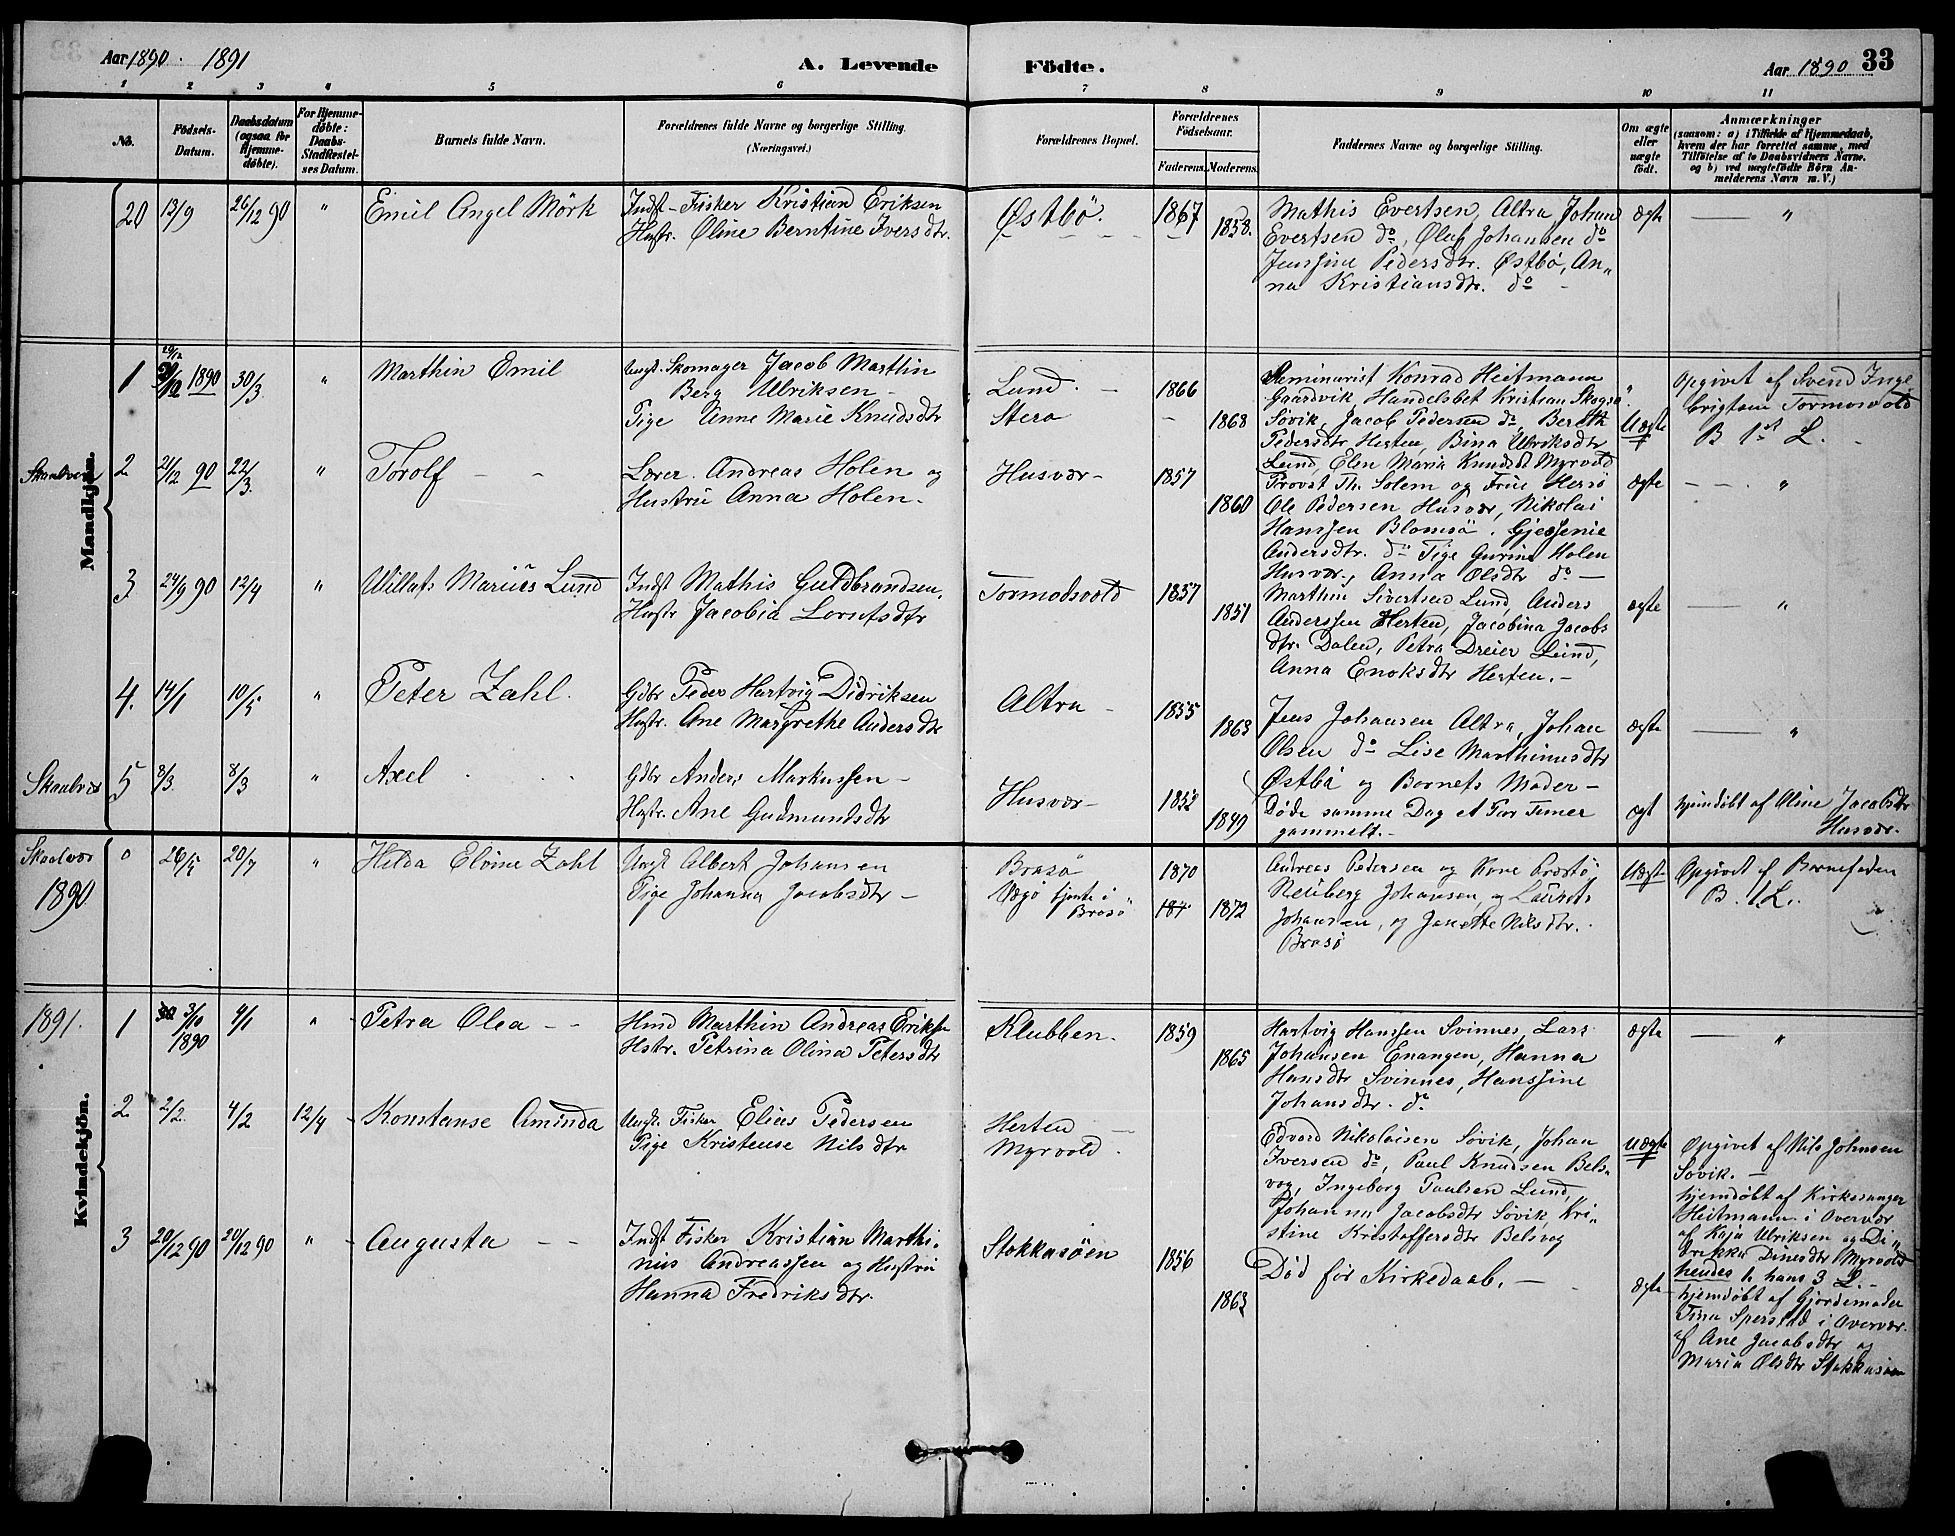 Aar 1890. 1891
A. Levende Födte.
Aar 1890 33
1 2 3 4 5 6 7 8 9 10 11
No.
Födsels-Datum.
Daabsdatum (ogsaa for Hjemmedöbte).
For Hjemmedöbte: Daabs-Stadfestelses Datum.
Barnets fulde Navn.
Forældrenes fulde Navne og borgerlige Stilling. (Næringsvei.)
Forældrenes Bopæl.
Forældrenes Födselsaar.
Faderens. Moderens.
Faddernes Navne og borgerlige Stilling.
Om ægte eller uægte födt.
Anmærkninger
(saasom: a) i Tilfælde af Hjemmedaab,
hvem der har forrettet samme, med
Tilföielse af to Daabsvidners Navne,
og b) ved uægtefödte Börn Anmelderens Navn m. V.)
20 13/9 26/12 90 " Emil Angel Mörk
Indst-Fisker Kristian Eriksen
Hustr. Oline Berntine Iversdtr.
Østbö. 1867 1858.
Mathis Evertsen, Altra, Johan
Evertsen do, Oluf Johansen do
Jenssine Pedersdtr. Østbö, An„
na Kristiansdtr. do
ægte "
Mandkjön.
1 29/12 1890 30/3 " Marthin Emil
Ungk. Skomager Jacob Martin
Berg Ulriksen
Pige Anne Marie Knudsdtr
Lund. 1866
Stera 1868
Seminarist Konrad Heitmann
Gaardvik, Handelsbet Kristian Skogsö
Sövik, Jacob Pedersen do, Bereth
Pedersdtr Herten, Bina Ulriksdtr
Lund, Elen Maria Knudsdt Myrvold
Uægte
Opgivet af Svend Inge
brigtsen Tormosvold
B 1st L.
Skaalvær 2 21/12 90 22/3. " Torolf
Lærer. Andreas Holen og
Hustru Anna Holen.
Husvær 1857 1860
Provst Th. Solem og Frue Herö
Ole Pedersen Husvær, Nikolai
Hanssen Blomsö. Gjessenie
Andersdtr. do Pige Gurine Holen
Husvær, Anna Olsdtr do
ægte "
3 24/9 90 12/4 " Willats Marius Lund
Indst Mathis Guldbrandsen,
Hustr Jacobia Lorntsdtr
Tormodsvold 1857 1851
Marthin Sivertsen Lund, Anders
Anderssen Herten, Jacobina Jacobs
dtr. Dalen, Petra Dreier Lund,
Anna Enoksdtr Herten.
ægte "
4. 14/1 10/5 " Peter Zahl.
Gdbr Peder Hartvig Didriksen
Hustr. Ane Margrethe Andersdtr
Altra 1855 1863
Jens Johansen Altra, Johan
Olsen do Lise Marthinusdtr
Østbö og Barnets Moder
ægte "
Skaalvær 5 8/3 8/3 " Axel
Gdbr Anders Markussen
Hustr. Ane Gudmundsdtr
Husvær 1852 1849
Døde samme Dag et Par Timer
gammelt.
ægt
hjemdöbt af Oline Jacobsdtr
Husvær.
Skaalvær 0 26/5 20/7 " Hilda Elvine Zahl
1890
Ungk Albert Johansen
Pige Johanna Jacobsdtr
Brasö 1870
Vægö tjente i
Brasö 1872
Andreas Pedersen og Kone Præstö,
Neuberg Johansen, og Laurits
Johansen, og Janette Nilsdtr.
Brasö
Uægt
Opgivet af Barnefaden
B. 1. L.
1891.
Kvindekjön.
1 3/10 1890 4/1 " Petra Olea
Hmd Marthin Andreas Eriksen
Hstr. Petrina Olina Petersdtr
Klubben. 1859 1865
Hartvig Hanssen Svinnes, Lars
Johansen Enangen, Hanna
Hansdtr Svinnes, Hanssine
Johansdtr. do
ægte "
2 2/2. 4/2 12/4 Konstanse Aminda
Ungk. Fisker Elias Pedersen
Pige Kristense Nilsdtr
Herten
Myrvold.
Edvard Nikolaisen Sövik, Johan
Iversen do, Paul Knudsen Bels„
vog, Ingeborg Paulsen Lund,
Johanna Jacobsdtr Sövik, Kri„
stine Kristoffersdtr Belsvog
Uægte
Opgivet af Nils Johnsen
Sövik.
hjemdöbt af Kirkesanger
Heitmann i Overvær
af Kaja Ulriksen og Di„
drikke Dinesdtr Myrvold
hendes 1. hans 3 L.
3 20/12 90 20/12 90 " Augusta
Indst Fisker Kristian Marthi„
nus Andreassen og Hustru
Hanna Fredriksdtr.
Stokkasöen 1856 1863
Död för Kirkedaab.
ægte
hjemdöbt af Gjordemoder
Tina Sperstad i Overvær.
af Ane Jacobsdtr og
Maria Olsdtr Stokkasöen